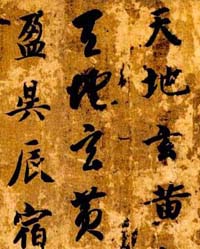 天地玄黄
天地玄黄
盈昃辰宿